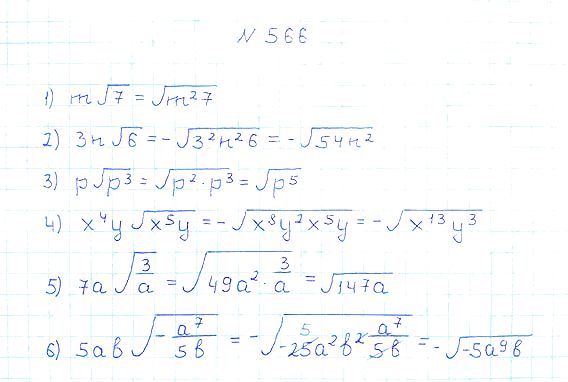 N 566
1) m√7 = √m²7
2) 3n√6 = -√3²n²6 = -√54n²
3) p√p³ = √p²·p³ = √p⁵
4) x⁴y√x⁵y = -√x⁸y²x⁵y = -√x¹³y³
5) 7a√3/a = √49a²·3/a = √147a
6) 5ab√-a⁷/5b = -√-25a²b² a⁷/5b 5 = -√-5a⁹b